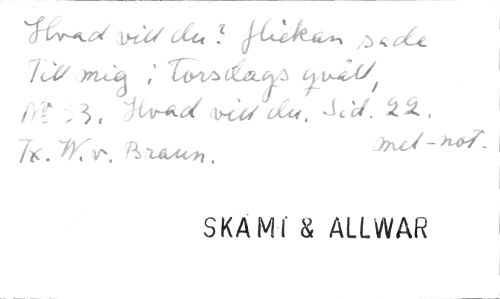 Hvad vill du? Flickan sade
Till mig i Torsdags qväll,
No 33. Hvad vill du. Sid. 22.
Tx. W. v. Braun. mel-not.
SKÄMT & ALLWAR